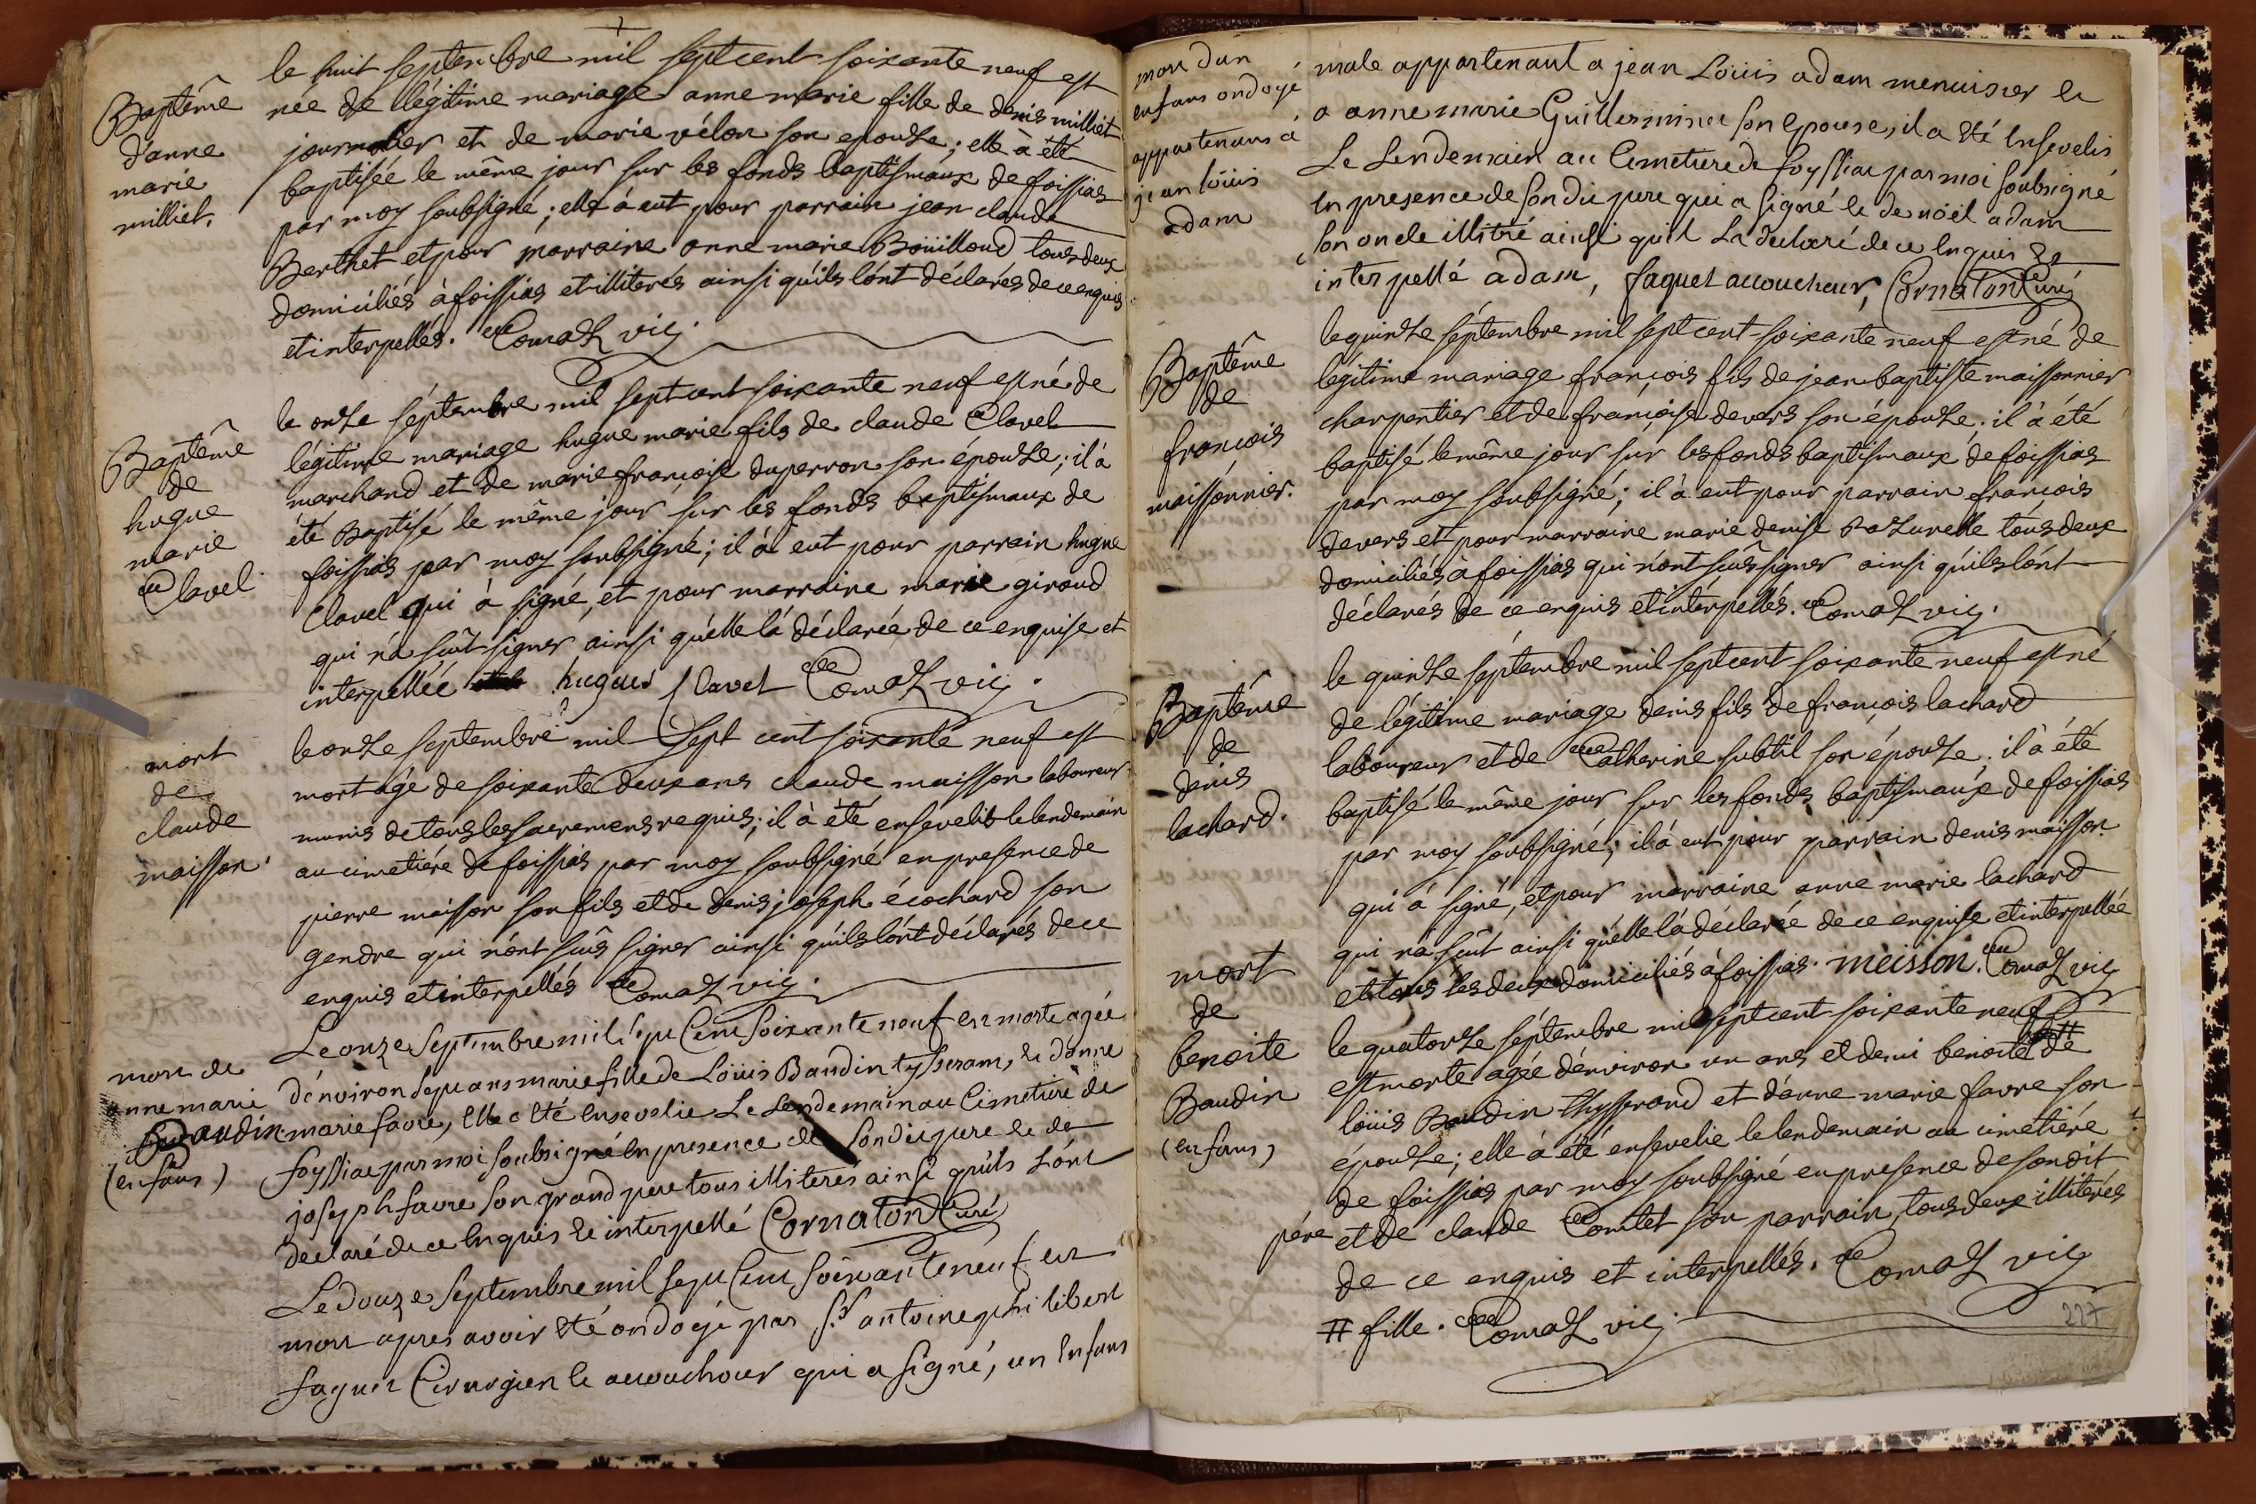 Baptême
d'anne
marie
milliet.
le huit septembre mil sept cent soixante neuf est
née de légitime mariage anne marie fille de denis milliet
journalier et de marie vélon son epouse; elle à été
baptisée le même jour sur les fonds baptismaux de foissias
par moy soubsigné; elle à eut pour parrain jean claude
Berthet et pour marraine anne marie Boüilloud tous deux
domiciliés à foissias et illiterés ainsi qu'ils l'ónt déclarés de ce enquis
et interpellés. Comaz vic;
Baptême
de
hugue
marie
Clavel
le onze séptembre mil sept cent soixante neuf est né de
légitime mariage hugue marie fils de claude Clavel
marchand et de marie françoise duperron son épouse; il à
été Baptisé le même jour sur les fonds baptismaux de
foissias par moy soubsigné; il à eut pour parrain hugue
Clavel qui à signé, et pour marraine marie giroud
qui n'à sçût signer ainsi qu'elle l'à déclarée de ce enquise et
interpellée hugues Clavel Comaz vic;
mort
de
claude
maisson.
le onze septembre mil sept cent soixante neuf est
mort agé de soixante deux ans claude maisson laboureur
munis de tous les sacremens requis; il à été enseveli le lendemain
au cimetiére de foissias par moy soubsigné en presence de
pierre maisson son fils et de denis joseph écochard son
gendre qui n'ónt sçûs signer ainsi qu'ils l'ónt déclarés de ce
enquis et interpellés Comaz vic;
mort de
anne marie
Baudin
(enfans)
Le onze Septembre mil sept Cent Soixante neuf est morte agée
d'environ sept ans marie fille de Loüis Baudin tysseran, et d'anne
marie favre, Elle a Eté Ensevelie Le Lendemain au Cimetiere de
foyssiac par moi soubsigné En presence de son dit pere et de
joseph favre Son grand pere tous illiteres ainsi qu'ils L'ont
declaré de ce Enquis et interpellé Cornaton Curé
Le douze Septembre mil sept Cent Soixante neuf est
mort apres avoir Eté ondoyé par Sr antoine philibert
faguet Cirurgien et accoucheur qui a signé, un Enfans
mort d'un
enfans ondoyé
appartenans à
jean loüis
adam
male appartenant a jean Loüis adam menuisier et
a anne marie Guillerminet son Epouse, il a Eté Enseveli
Le Lendemain au Cimetiere de foyssiac par moi soubsigné
En presence de son dit pere qui a signé et de nöel adam
Son oncle illitré ainsi qu'il L'a declaré de ce Enquis et
interpellé adam, faguet accoucheur, Cornaton Curé
Baptême
de
françois
maissonnier.
le quinze séptembre mil sept cent soixante neuf est né de
légitime mariage françois fils de jean baptiste maissonnier
charpentier et de françoise devers son épouse; il à été
baptisé le même jour sur les fonds baptismaux de foissias
par moy soubsigné; il à eut pour parrain françois
devers et pour marraine marie denise Pasurelle tous deux
domiciliés à foissias qui n'ónt sçûs signer ainsi qu'ils l'ónt
déclarés de ce enquis et interpellés. Comaz vic;
Baptême
de
denis
lachard.
le quinze séptembre mil sept cent soixante neuf est né
de légitime mariage denis fils de françois lachard
laboureur et de Catherine subtil son épouse; il à été
baptisé le même jour sur les fonds baptismaux de foissias
par moy soubsigné; il à eut pour parrain denis maisson
qui à signé, et pour marraine anne marie lachard
qui n'à sçût ainsi qu'elle l'à déclarée de ce enquise et interpellée
et tous les deux domiciliés à foissias. meisson. Comaz vic;
mort
de
benoite
Baudin
(enfans)
le quatorze séptembre mil sept cent soixante neuf
est morte agée d'environ un ans et demi benoite # de
loüis Baudin thysserand et d'anne marie favre son
épouse; elle à été ensevelie le lendemain au cimetiére
de foissias par moy soubsigné en presence de son dit
pére et de claude Comtet son parrain, tous deux illiterés
de ce enquis et interpellés. Comaz vic;
# fille. Comaz vic;
227